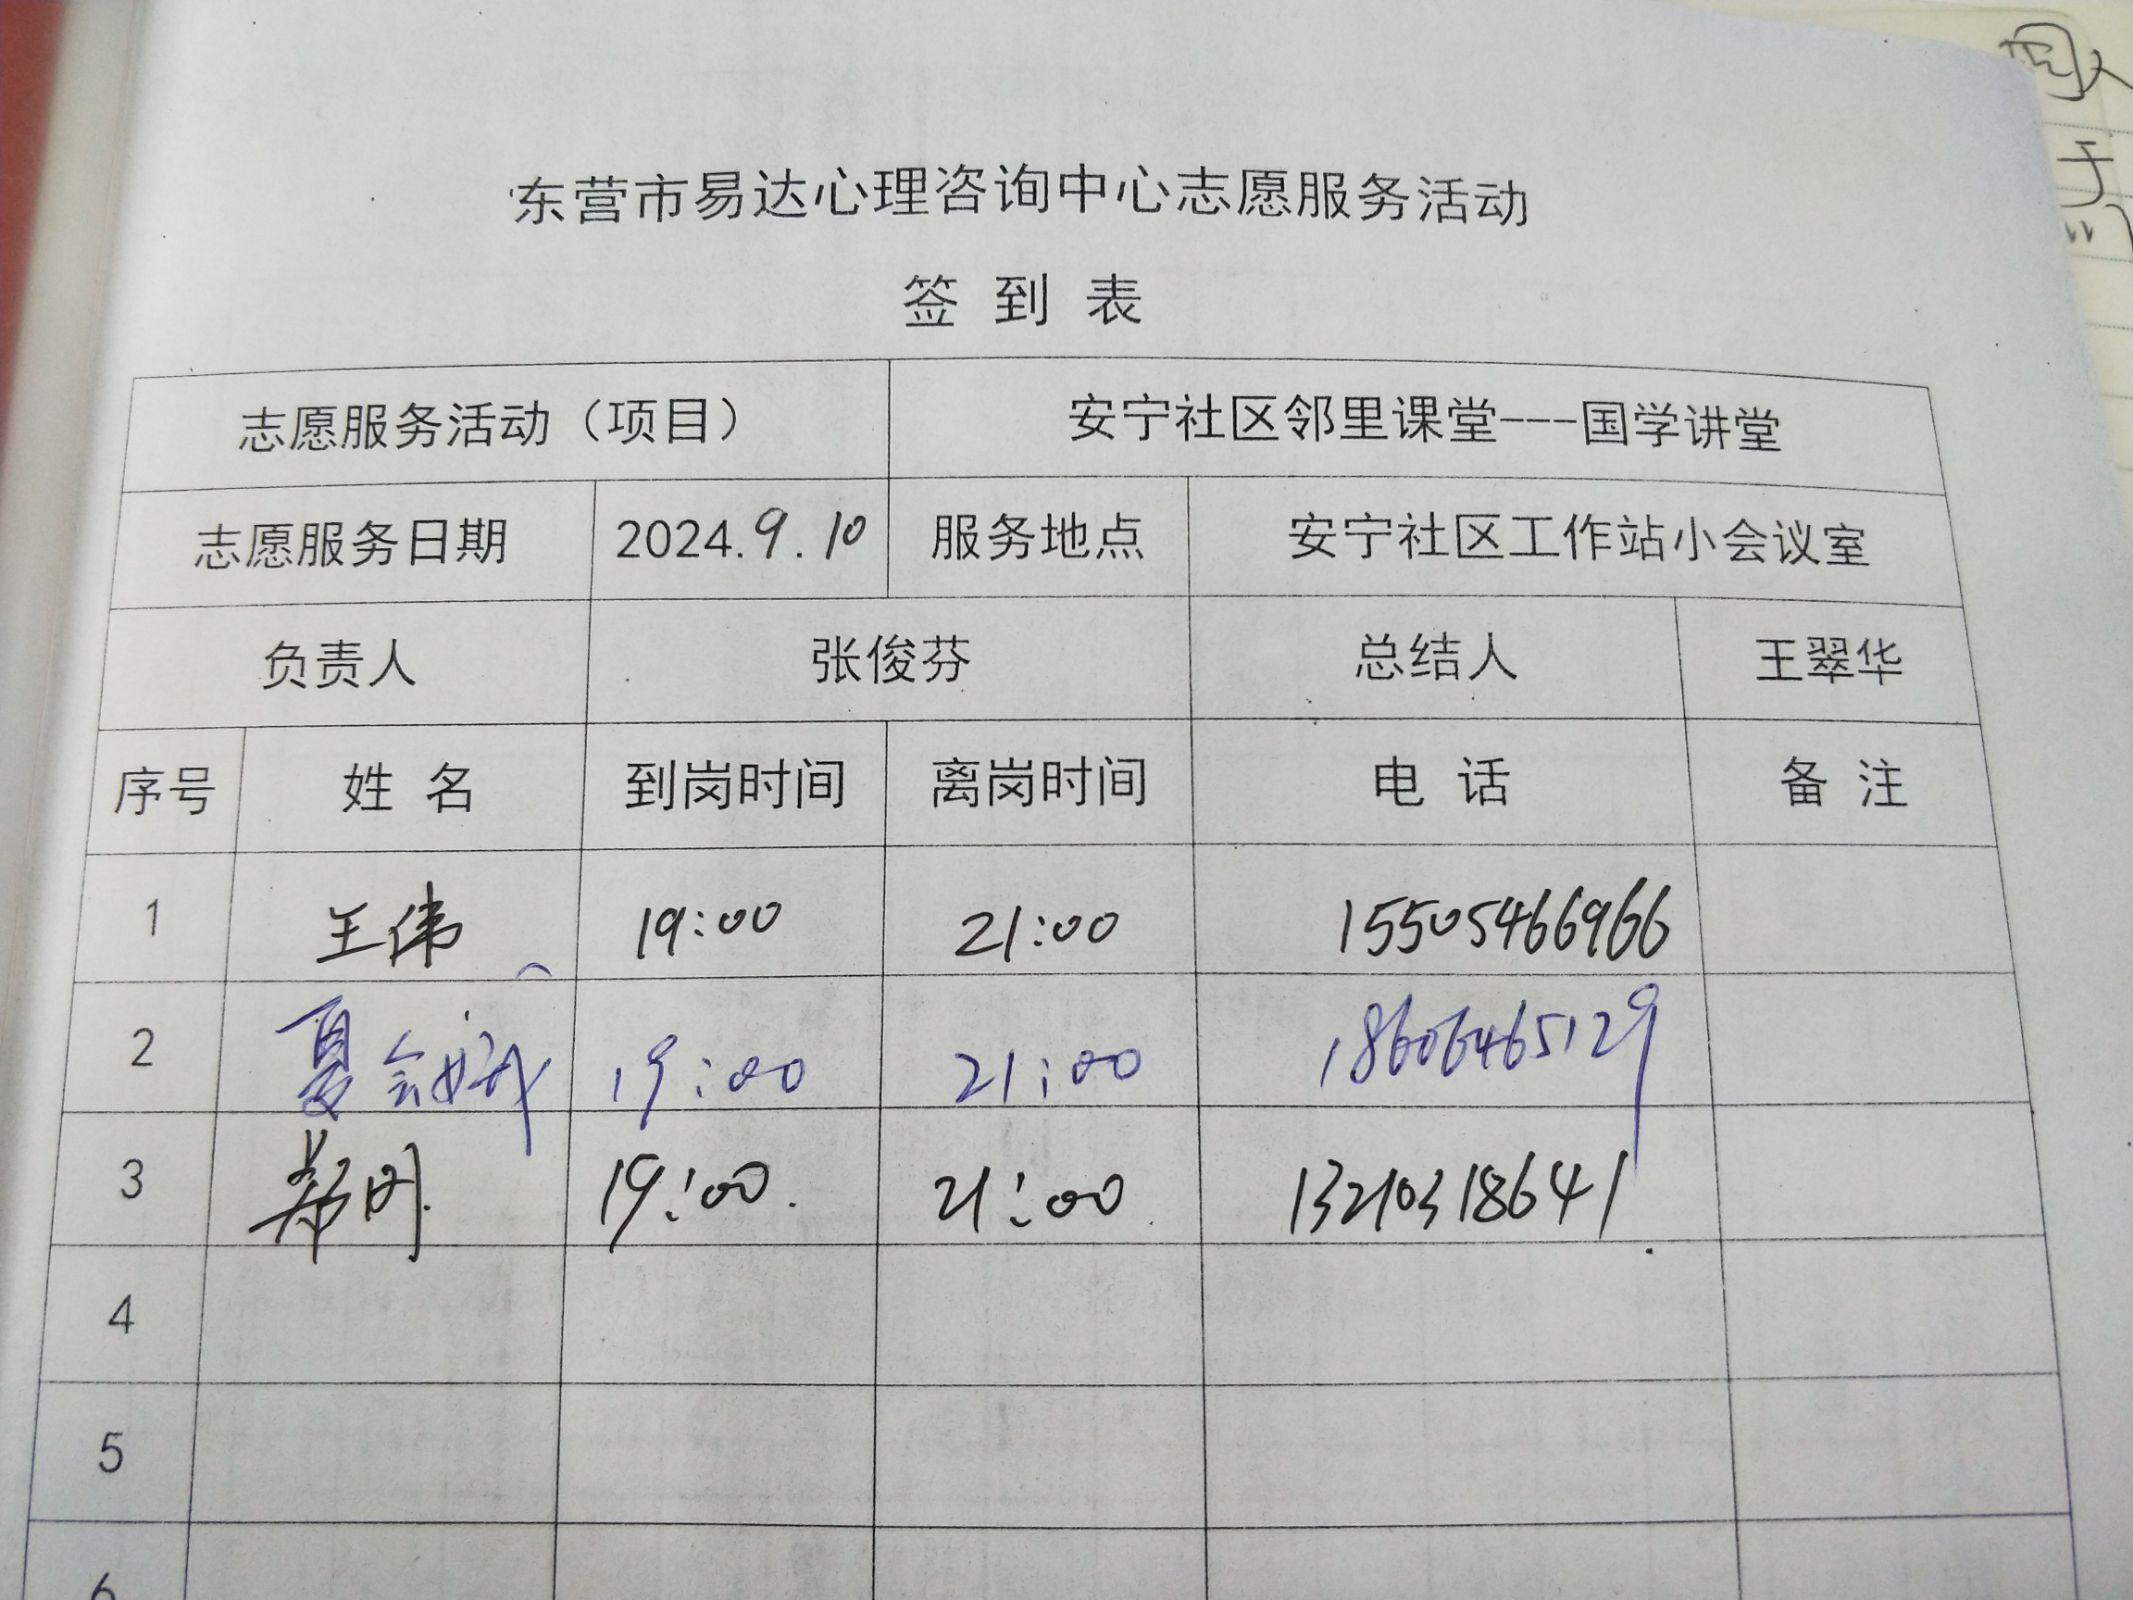 东营市易达心理咨询中心志愿服务活动
签 到 表
志愿服务活动（项目） 安宁社区邻里课堂---国学讲堂
志愿服务日期 2024.9.10 服务地点 安宁社区工作站小会议室
负责人 张俊芬 总结人 王翠华
序号 姓 名 到岗时间 离岗时间 电 话 备 注
1 王伟 19:00 21:00 15505466966
2 夏会娥 19:00 21:00 18606465129
3 19:00 21:00 13210318641
4
5
6
于